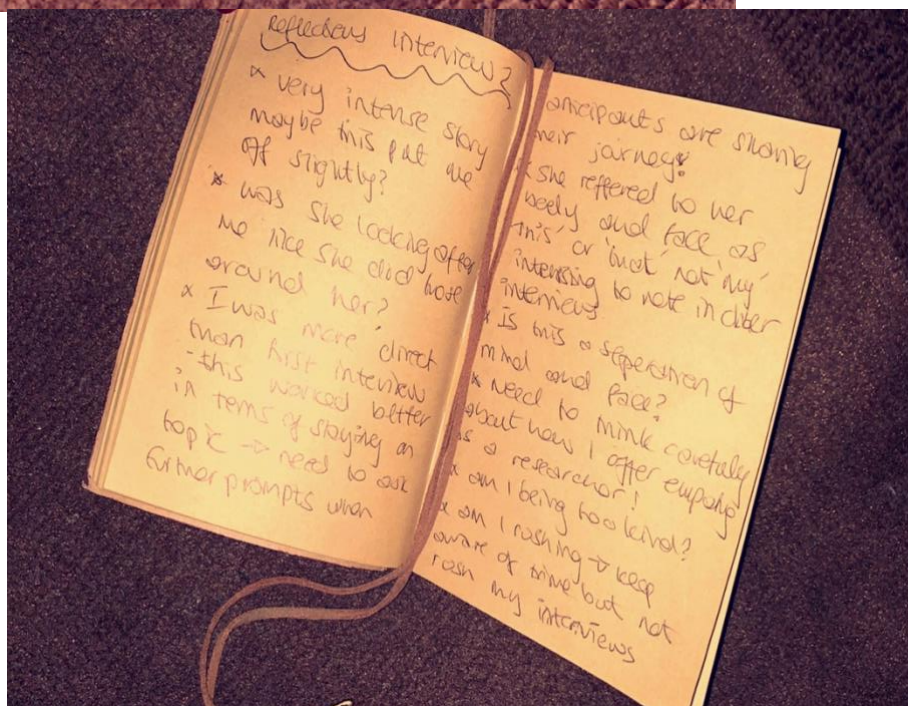 Reflections interview 2
x very intense story
maybe this put me
off slightly?
x was she looking after
me like she did those
around her?
x I was more direct
than first interview
- this worked better
in terms of staying on
topic → need to ask
further prompts when
participants are sharing
their journey!
x she reffered to her
body and face, as
'this' or 'that' not 'my'
interesting to note in other
interviews
x Is this a seperation of
mind and face?
x Need to think carefully
about how I offer empathy
as a researcher!
x am I being too kind?
x am I rushing → keep
aware of time but not
rush my interviews